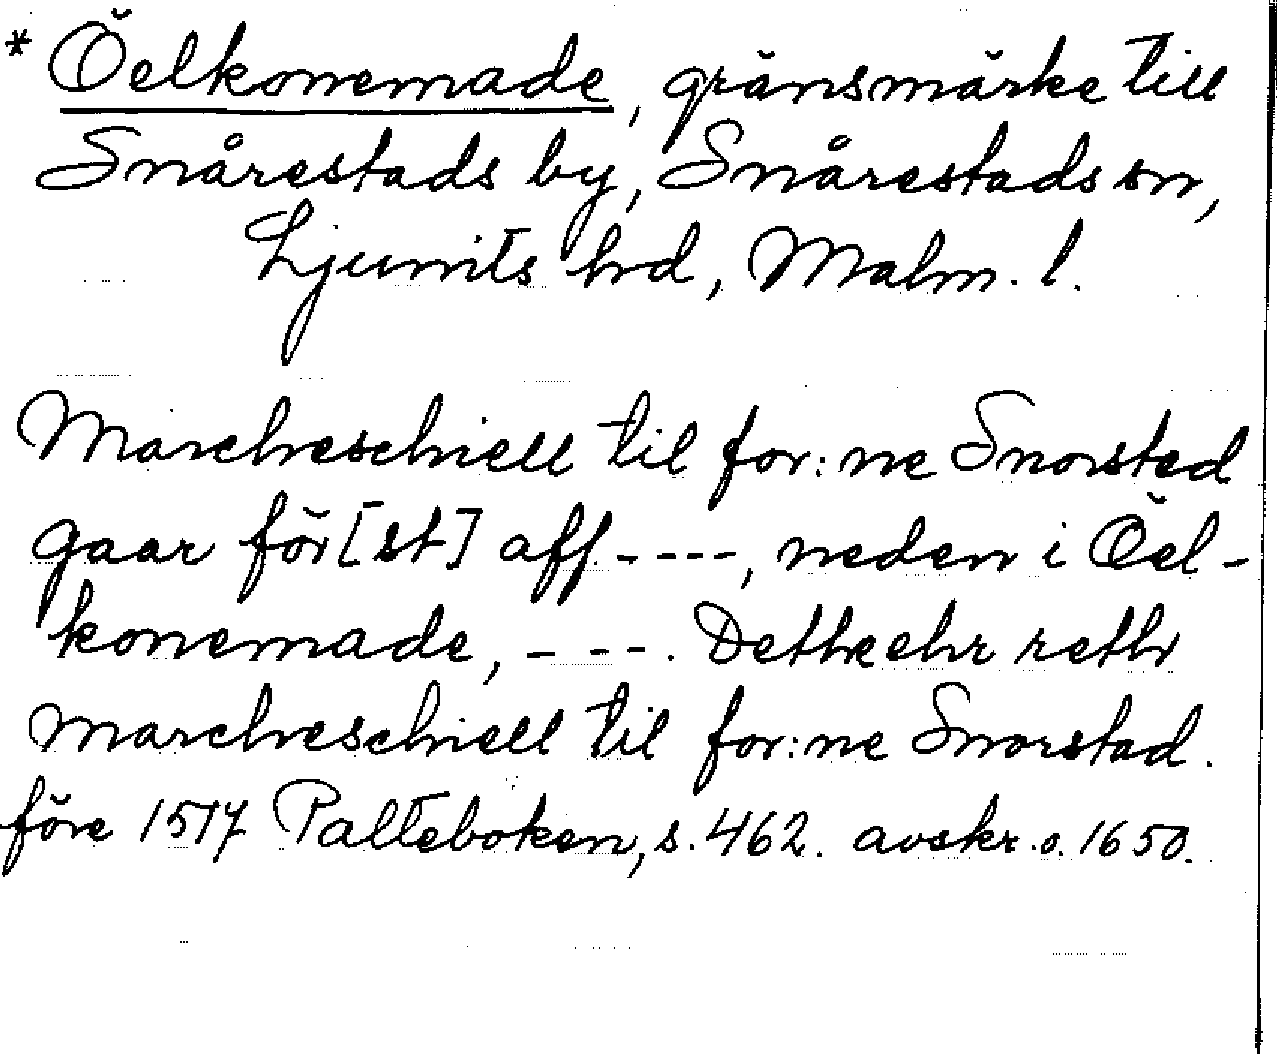 * Öelkonemade, gränsmärke till
Snårestads by, Snårestads sn,
Ljunits hrd, Malm. l.
Marcheschiell til for: ne Snorsted
gaar för[st] aff. - - - -, neden i Öel-
konemade, - - - . Dethe ehr reth
marcheschiell til for: ne Snorstad.
före 1517 Palteboken, s. 462. avskr. o. 1650.